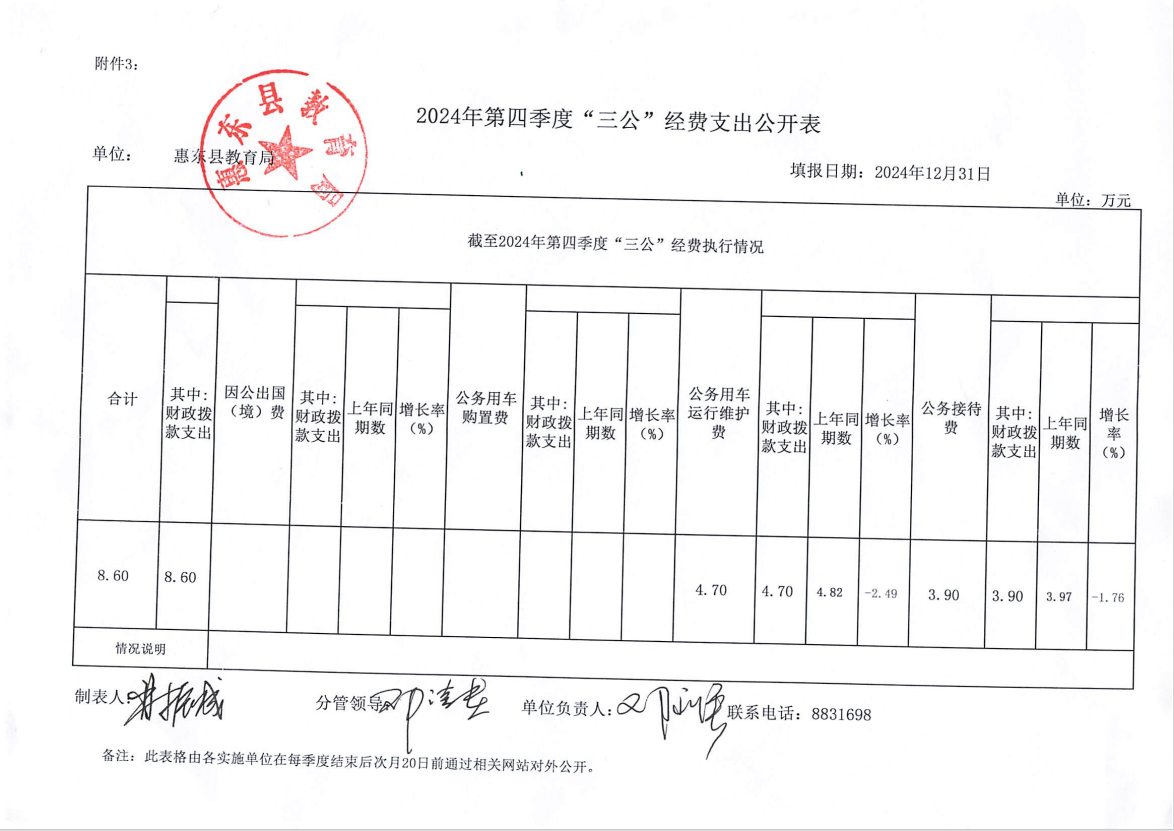 附件3：
惠东县教育局
2024年第四季度“三公”经费支出公开表
单位： 惠东县教育局
填报日期：2024年12月31日
单位：万元
截至2024年第四季度“三公”经费执行情况
合计
其中：
财政拨
款支出
因公出国
（境）费
其中：
财政拨
款支出
上年同
期数
增长率
（%）
公务用车
购置费
其中：
财政拨
款支出
上年同
期数
增长率
（%）
公务用车
运行维护
费
其中：
财政拨
款支出
上年同
期数
增长率
（%）
公务接待
费
其中：
财政拨
款支出
上年同
期数
增长
率
（%）
8.60 8.60 4.70 4.70 4.82 -2.49 3.90 3.90 3.97 -1.76
情况说明
制表人： 分管领导 单位负责人： 联系电话：8831698
备注：此表格由各实施单位在每季度结束后次月20日前通过相关网站对外公开。